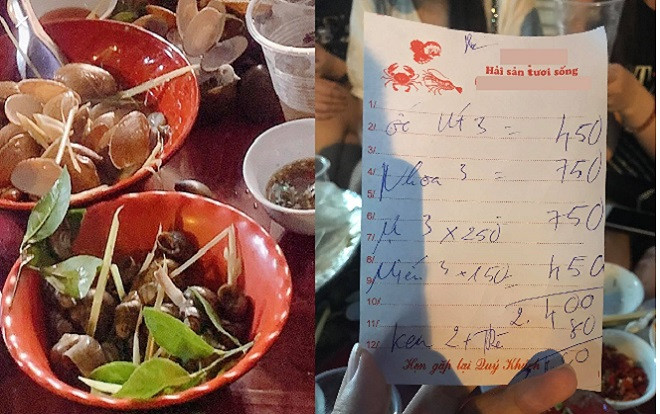 Hải sản tươi sống
1/
2/ ốc út 3 = 450
3/
4/ Nhoa 3 = 750
5/
6/ 3 x 250 750
7/
8/ Miến 3 x 150 450
9/
10/ 2.400
11/ 80
12/ Ken 2 +
Hẹn gặp lại Quý Khách